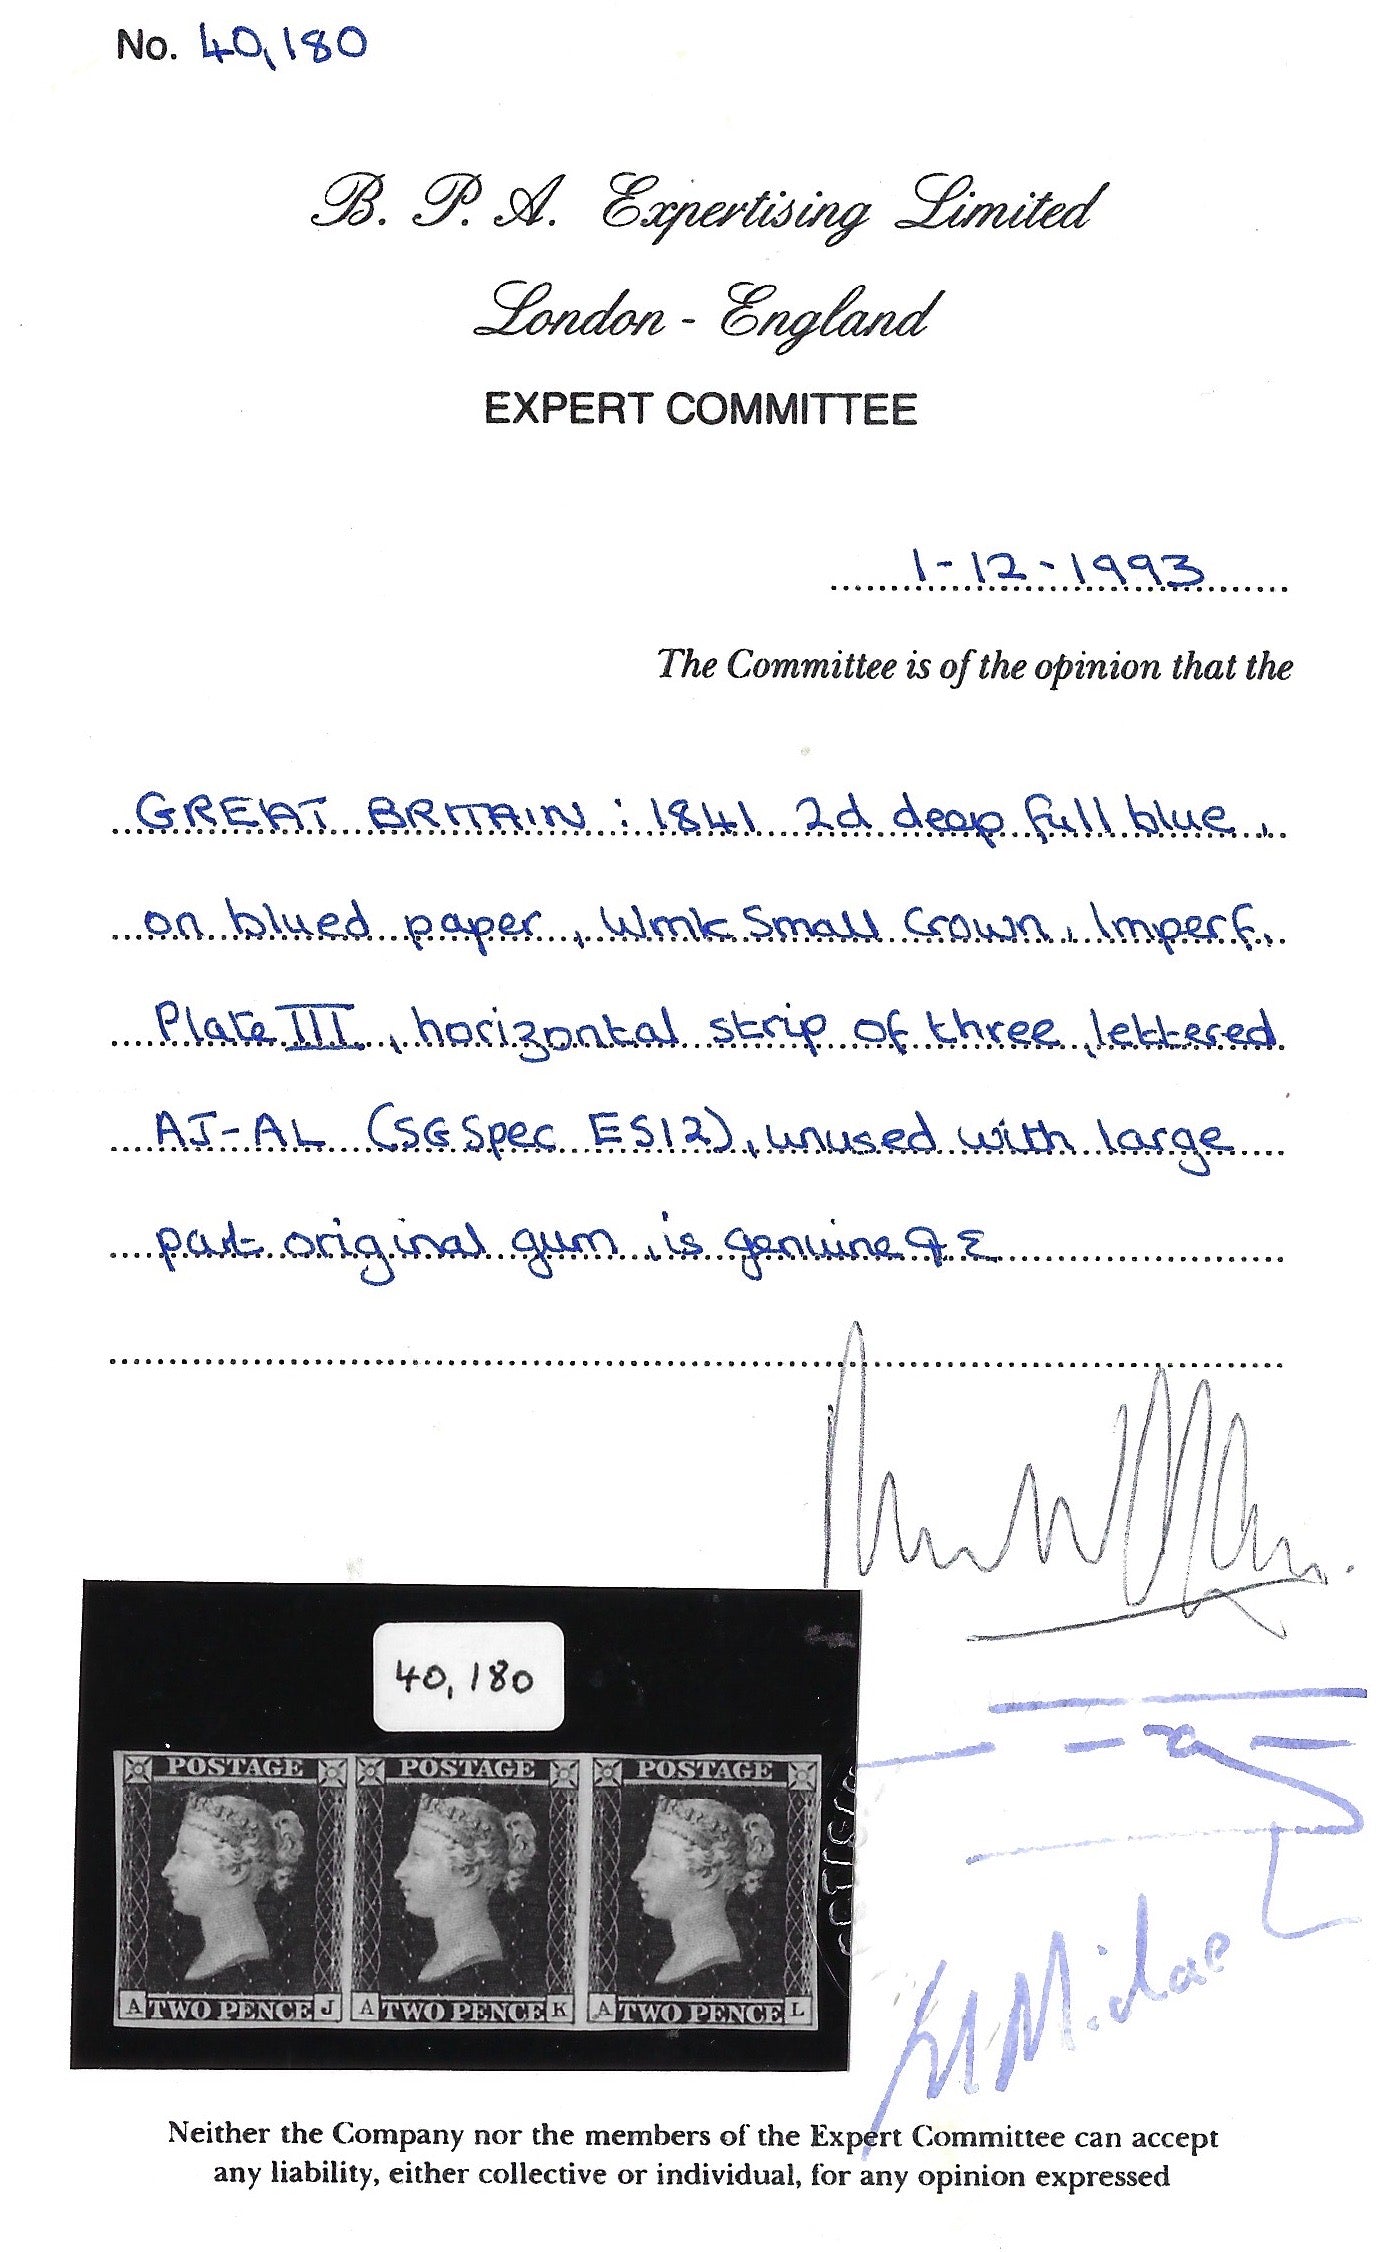 No. 40,180
B. P. A. Expertising Limited
London - England
EXPERT COMMITTEE
1-12-1993
The Committee is of the opinion that the
GREAT BRITAIN : 1841 2d deep full blue,
on blued paper, Wmk Small Crown, Imperf,
Plate III, horizontal strip of three, lettered
AJ-AL (SG Spec ES12), unused with large
part original gum, is genuine
40,180
POSTAGE POSTAGE POSTAGE
A TWO PENCE J A TWO PENCE K A TWO PENCE L
Neither the Company nor the members of the Expert Committee can accept
any liability, either collective or individual, for any opinion expressed